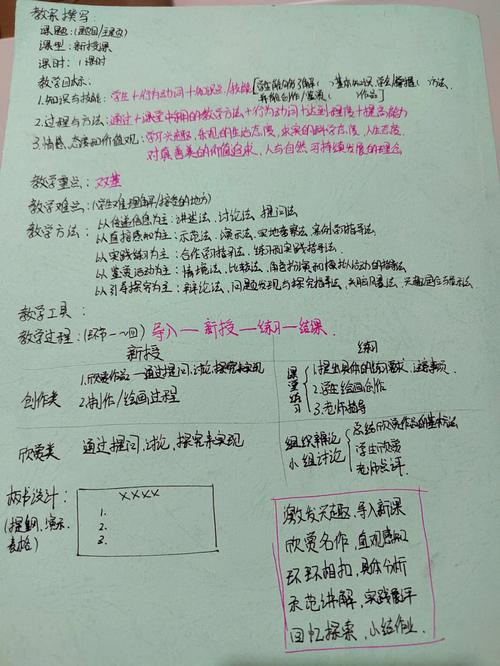 教案撰写
课题:(题目/主课页)
课型:新授课
课时:1课时
教学目标:
1.知识与技能:学生+行为动词+知识点/技能[学生能够了解( )基本知识,学会/掌握( )方法,
并能创作/鉴赏( )作品]
2.过程与方法:通过+课堂中用的教学方法+行为动词+达到程度+提高能力
3.情感、态度和价值观:学习兴趣,乐观的生活态度,求实的科学态度,人生态度,
对真善美的价值追求,人与自然可持续发展的理念
教学重点:双基
教学难点:(学生难理解/接受的地方)
教学方法:以传递信息为主:讲述法、讨论法、提问法
以直接感知为主:示范法、演示法、实地考察法、案例学习指导法
以实践练习为主:合作学习指导法、练习和实践指导法
以鉴赏活动为主:情境法、比较法、角色扮演和模拟活动的指导法
以引导探究为主:辩论法、问题发现与探究指导法、头脑风暴法
教学工具:
教学过程:(环节一~四)导入—新授—练习—结课.
新授 练习
创作类 1.欣赏作品—通过提问,讨论,探究来实现
2.制作/绘画过程
课堂练习 1.提出具体的练习要求、注意事项.
2.学生绘画创作
3.老师指导
欣赏类 通过提问,讨论,探究来实现
组织辩论 总结欣赏作品的基本方法
小组讨论 学生欣赏
老师点评.
板书设计:
(提纲,演示,
表格)
XXXX
1.
2.
3.
激发兴趣,导入新课
欣赏名作,直观感知
环环相扣,具体分析
示范讲解,实践展评
回忆探索,小结作业.